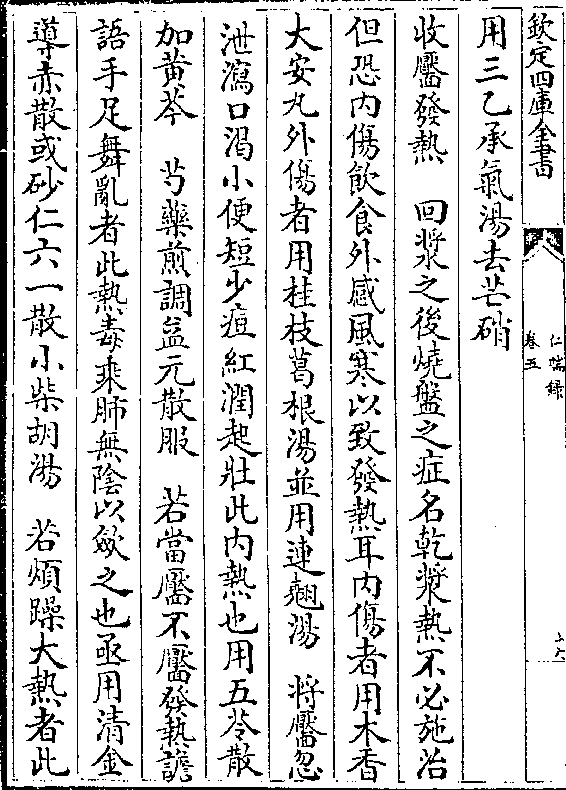 欽定四庫全書
仁端錄
卷五
用三乙承氣湯去芒硝
收靨發熱　回漿之後燒盤之症名乾漿熱不必施治
但恐内傷飲食外感風寒以致發熱耳内傷者用木香
大安丸外傷者用桂枝葛根湯並用連翹湯　將靨忽
泄瀉口渴小便短少痘紅潤起壯此内熱也用五苓散
加黄芩　芍藥煎調益元散服　若當靨不靨發熱譫
語手足舞亂者此熱毒乘肺無陰以斂之也亟用清金
導赤散或砂仁六一散小柴胡湯　若煩躁大熱者此